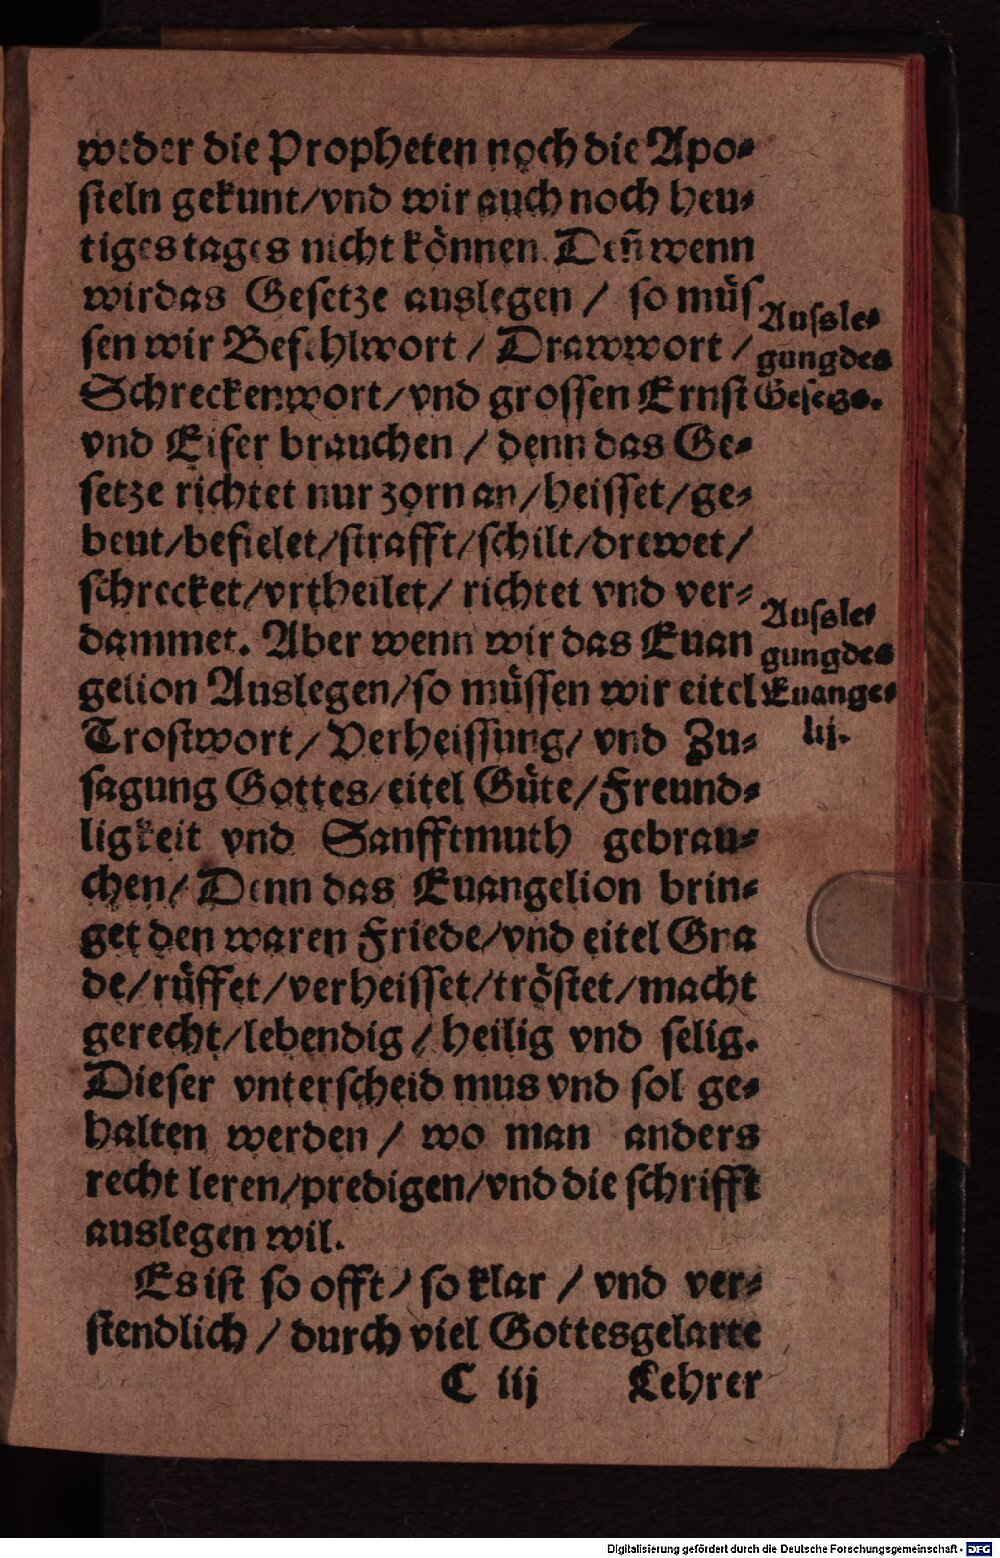 weder die Propheten noch die Apo⸗
steln gekunt/vnd wir auch noch heu⸗
tiges tages nicht können. Deñ wenn
wir das Gesetze auslegen / so müs
sen wir Befehlwort / Drawwort /
Schreckenwort/vnd grossen Ernst
vnd Eifer brauchen / denn das Ge⸗
setze richtet nur zorn an/heisset/ge⸗
beut/befielet/strafft/schilt/drewet/
schrecket/vrtheilet/ richtet vnd ver⸗
dammet. Aber wenn wir das Euan
gelion Auslegen/so müssen wir eitel
Trostwort/ Verheissung/ vnd Zu⸗
sagung Gottes/eitel Güte/Freund⸗
ligkeit vnd Sanfftmuth gebrau⸗
chen/ Denn das Euangelion brin⸗
get den waren Friede/vnd eitel Gna
de/rüffet/verheisset/tröstet/macht
gerecht/lebendig / heilig vnd selig.
Dieser vnterscheid mus vnd sol ge⸗
halten werden / wo man anders
recht leren/predigen/vnd die schrifft
auslegen wil.
Es ist so offt/ so klar / vnd ver⸗
stendlich / durch viel Gottesgelarte
C iij Lehrer
Aussle⸗
gung des
Gesetzs.
Aussle⸗
gung des
Euange⸗
lij.
Digitalisierung gefördert durch die Deutsche Forschungsgemeinschaft - DFG